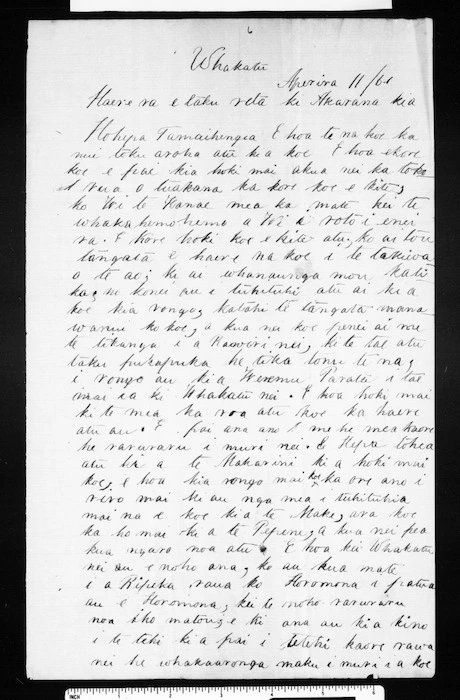 6
Whakatu
Aperira 11/61
Haere ra e taku reta ki Akarana kia
Hohepa Tamaihengia E hoa tena koe ka
nui toku aroha atu kia koe E hoa ekore
koe e pai kia hoki mai akua nei ka toko
rua o wakana ka kore koe e kite,
ko Wi te Kanae mea ka mate kei te
whaka hemohemo a Wi i roto i enei
ra. E kore hoki koe e kite atu, ko ai tou
tangata e haere na koe i te takiwa
o te ao; ko ai whanaunga mou kati
ka, no konei au e tuhituhi atu ai kia
koe kia rongo; katahi te tangata mana
ko koe, a kua nei koe penei ai me
te tikanga i a Rawiri nei; kite tae atu
taku pukapuka he tika tonu te na;
i rongo au kia Weremu Paratu i tae
mai ia ki Whakatu nei. E hoa hoki mai
ki te mea ka roa atu koe ka haere
atu au. E pai ana ano me he mea kaore
he raruraru i muri nei. E Hepa tohea
atu kia a te Makarini kia hoki mai
koe; e hoa kia rongo mai koe ka ore ano i
riro mai he au nga mea i tuhituhia
mai na e koe kia te Make, ara koe
ka ho mai kia te Pepene; a kua nei pea
kua ngaro noa atu E hoa kei Whakatu
nei au e noho ana; ko au kua mate
i a Ripeka raua ko Horomona i patua
au e Horomona; kei te noho raruraru
noa iho matou; e ki ana au kia kino
i te tehi kia pai i tetehi kaore rawa
nei he whakaaronga maku i muri i a koe
INCH